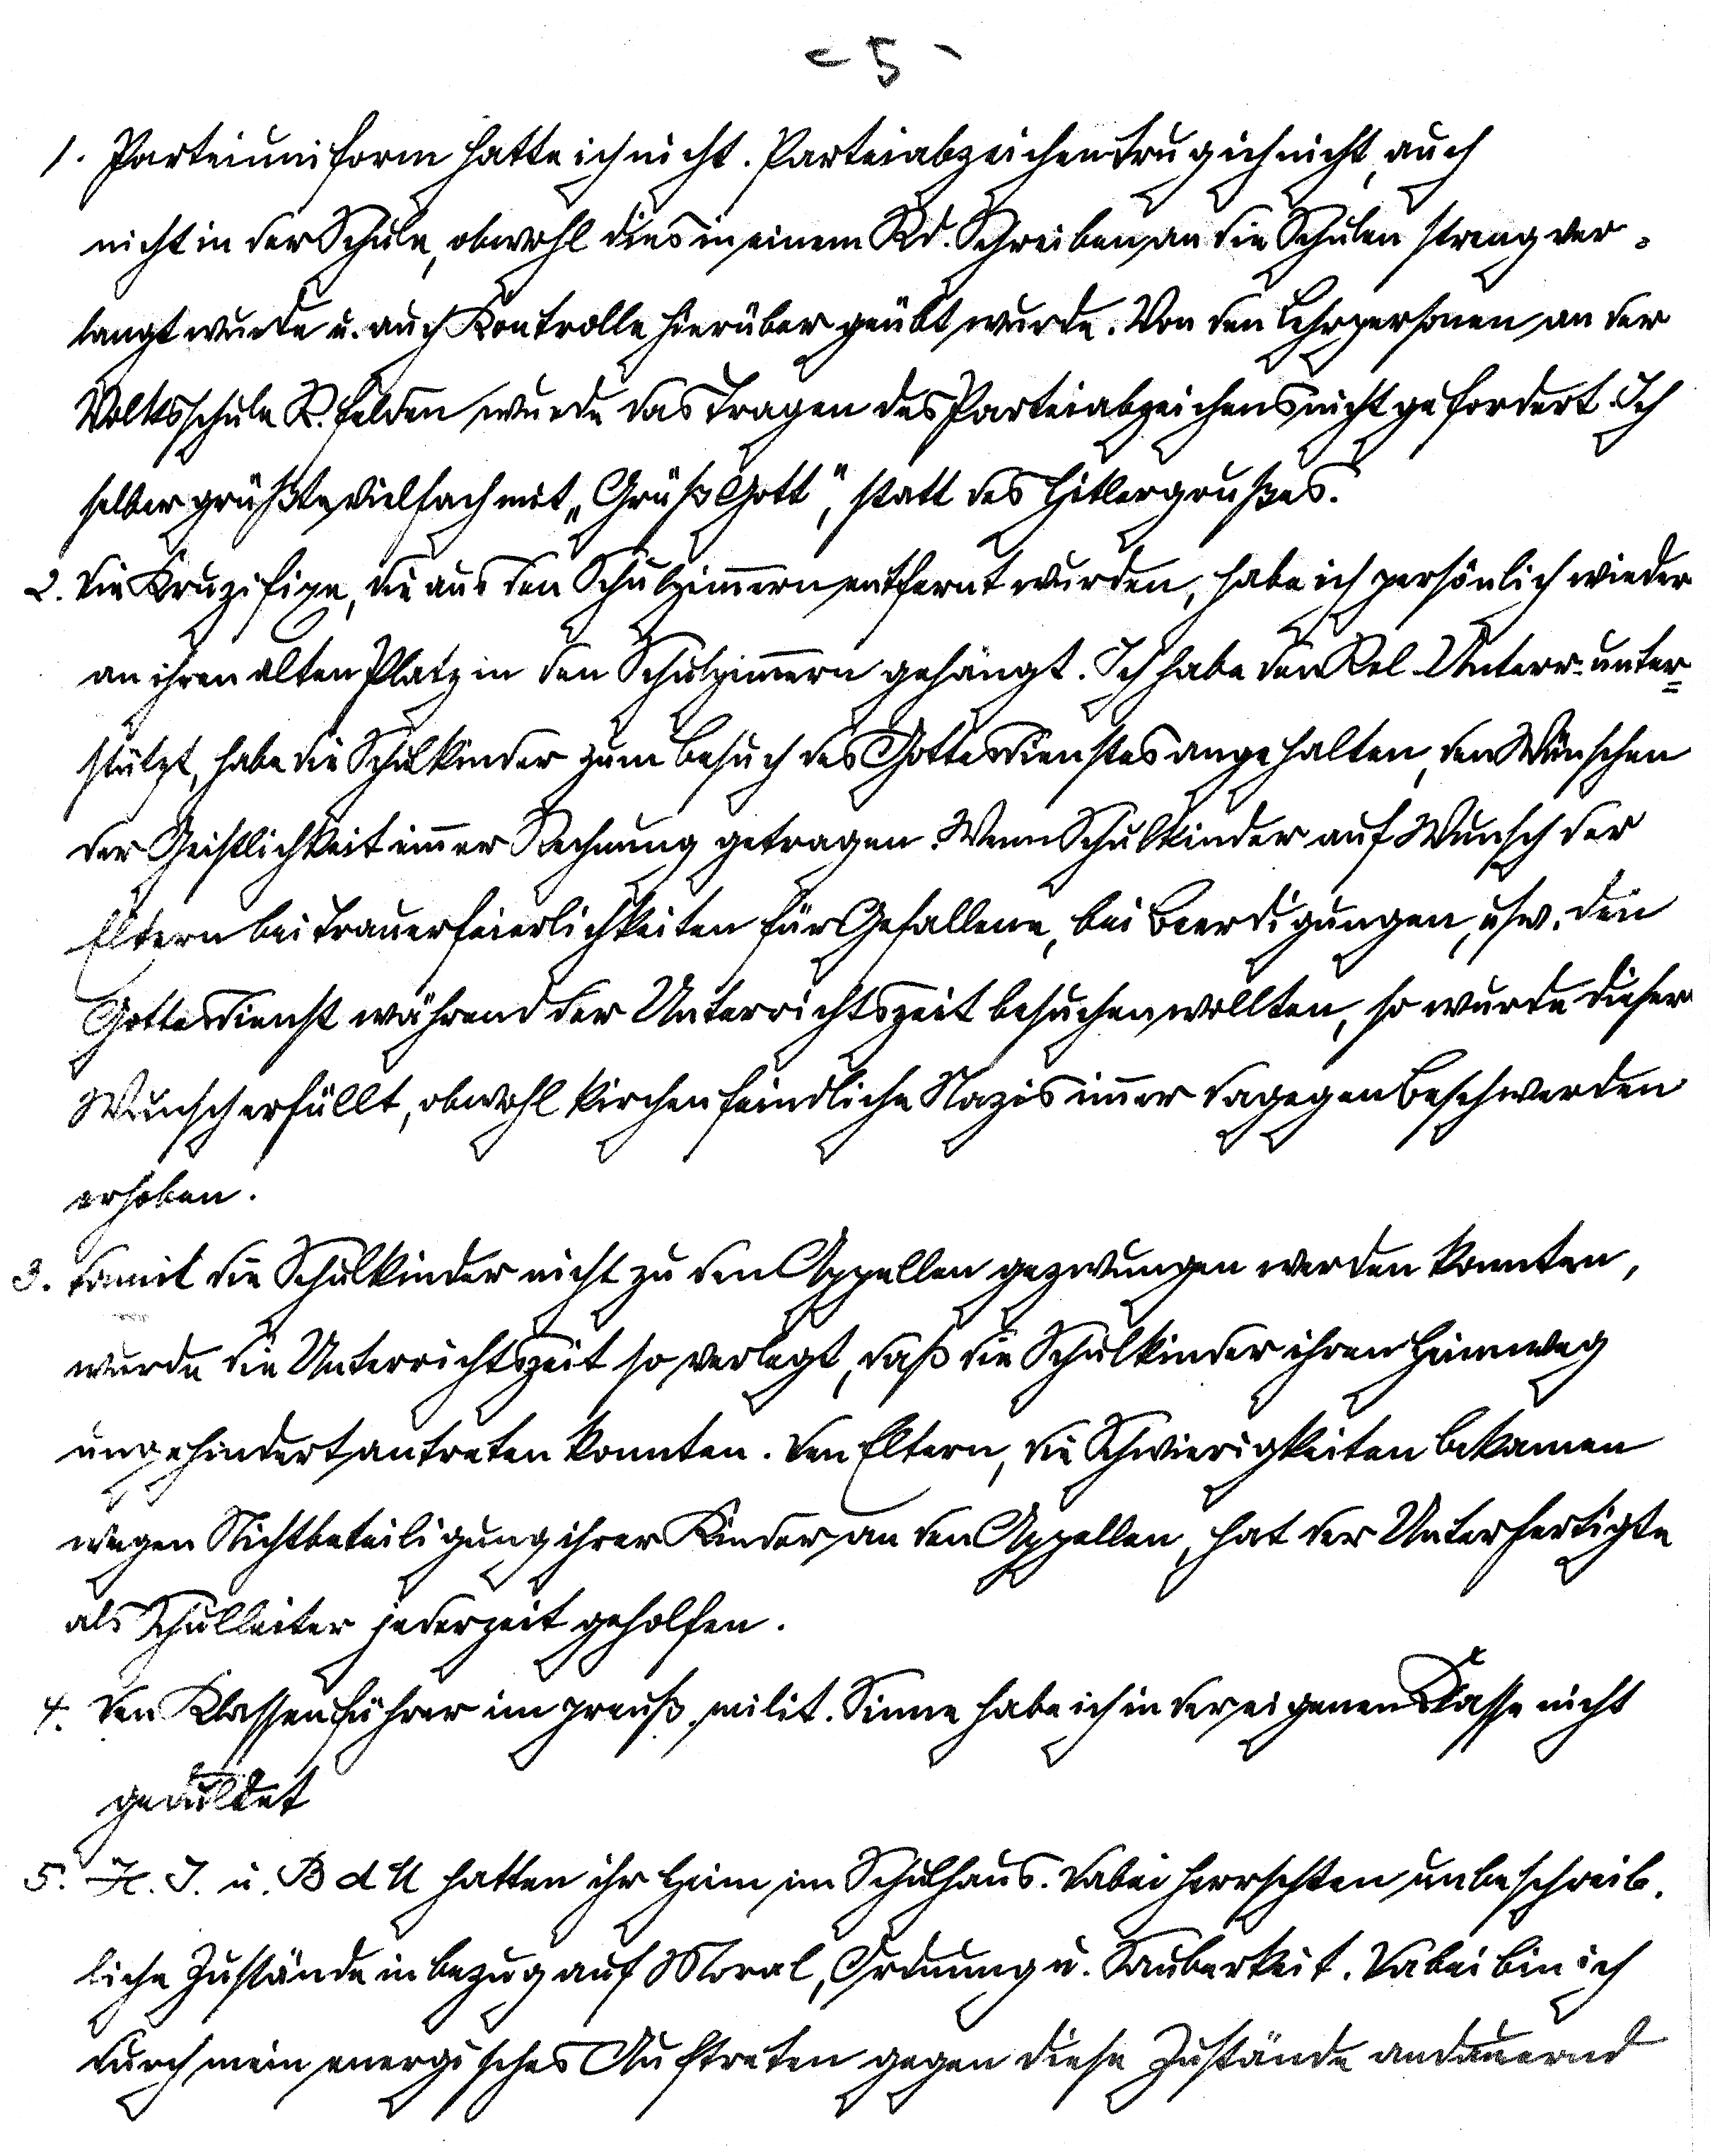 - 5 -
1. Parteiuniform hatte ich nicht. Parteiabzeichen trug ich nicht, auch
nicht in der Schule, obwohl dies in einem Rd. Schreiben an die Schulen streng ver-
langt wurde u. auch Kontrolle hierüber geübt wurde. Von den Lehrpersonen an der
Volksschule R.felden wurde das Tragen des Parteiabzeichens nicht gefordert. Ich
selber grüßte vielfach mit „Grüß Gott", statt des Hitlergrußes.
2. Die Kruzifixe, die aus den Schulzimmern entfernt wurden, habe ich persönlich wieder
an ihren alten Platz in den Schulzimmern gehängt. Ich habe den Rel. Unterr. unter=
stützt, habe die Schulkinder zum Besuch des Gottesdienstes angehalten, den Wünschen
der Geistlichkeit immer Rechnung getragen. Wenn Schulkinder auf Wunsch der
Eltern bei Trauerfeierlichkeiten für Gefallene, bei Beerdigungen, usw. den
Gottesdienst während der Unterrichtszeit besuchen wollten, so wurde dieser
Wunsch erfüllt, obwohl kirchenfeindliche Nazis immer dagegen Beschwerden
erhoben.
3. Damit die Schulkinder nicht zu den Appellen gezwungen werden konnten,
wurde die Unterrichtszeit so verlegt, daß die Schulkinder ihren Heimweg
ungehindert antreten konnten. Den Eltern, die Schwierigkeiten bekamen
wegen Nichtbeteiligung ihrer Kinder an den Appellen, hat der Unterfertigte
als Schulleiter jederzeit geholfen.
4. Den Klassenführer im preuß. milit. Sinne habe ich in der eigenen Klasse nicht
geduldet
5. H. J. u. B d M hatten ihr Heim im Schulhaus. Dabei herrschten unbeschreib-
liche Zustände in bezug auf Moral, Ordnung u. Sauberkeit. Dabei bin ich
durch mein energisches Auftreten gegen diese Zustände andauernd